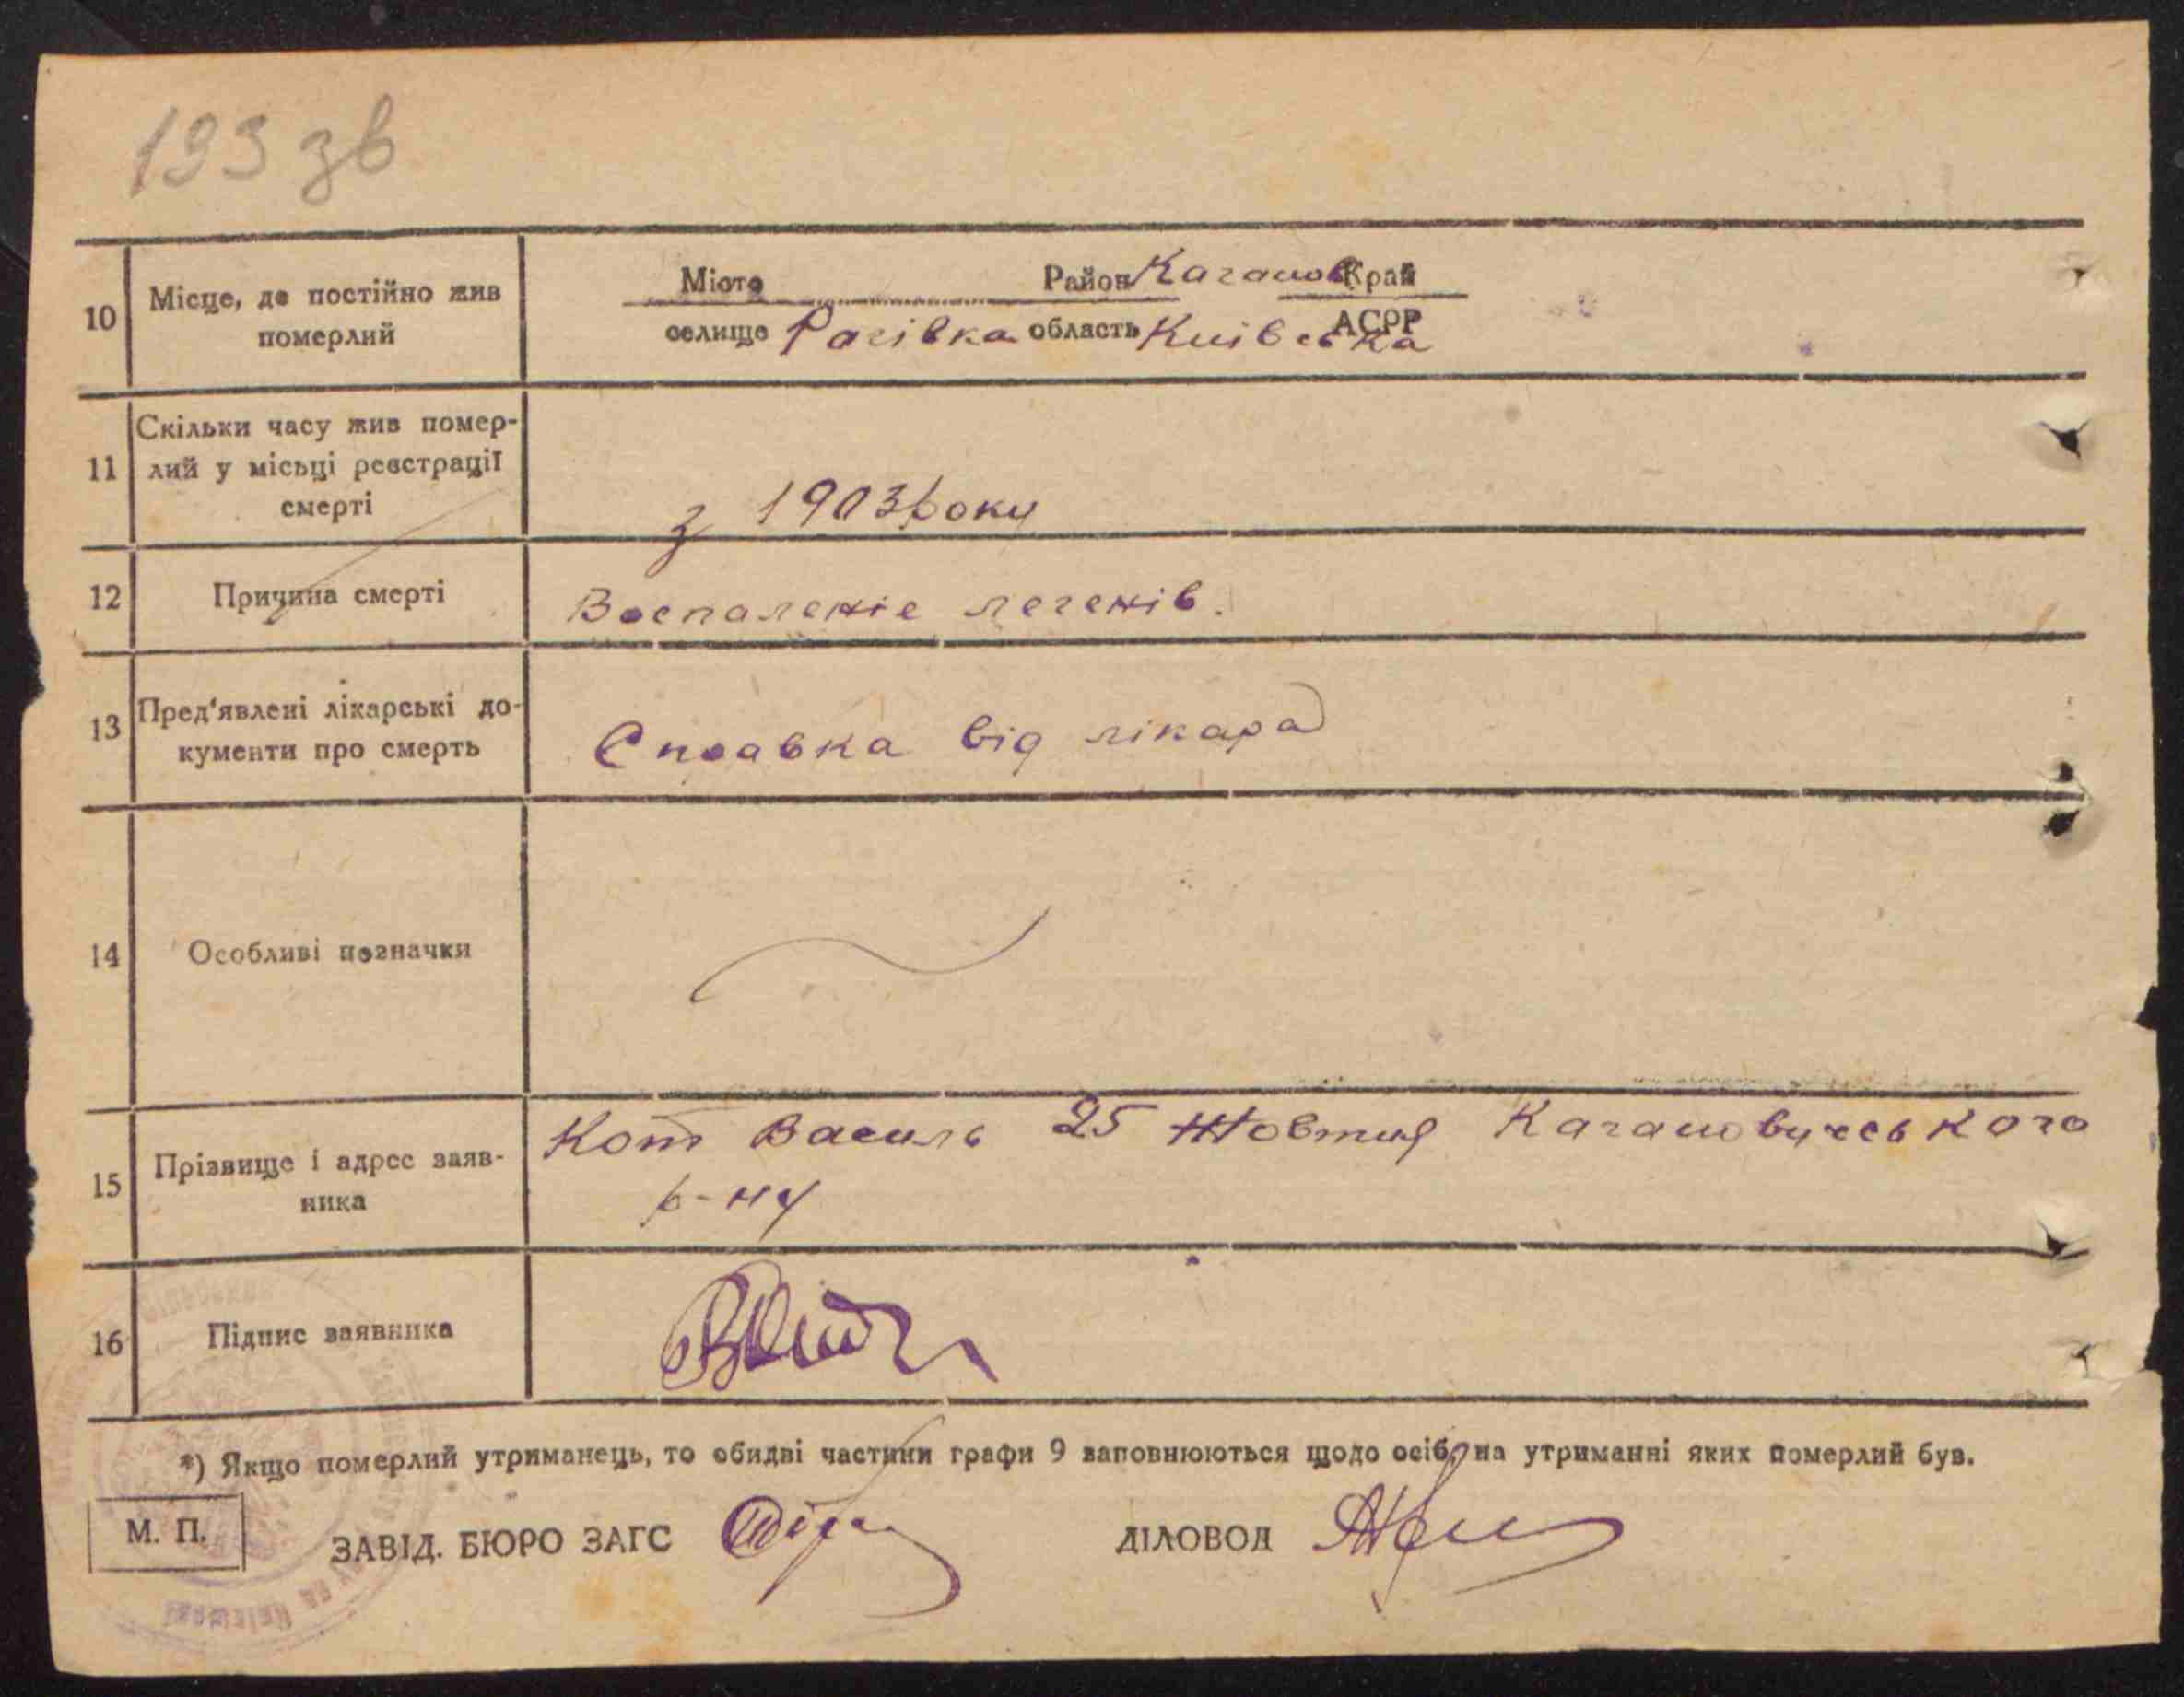 193 зв
10 Місце, де постійно жив померлий
Місто Район Каганов Край
селище Рагівка область Київська АСРР
11 Скільки часу жив помер-
лий у місьці реєстрації
смерті
з 1903 року
12 Причина смерті Воспаленіе легенів.
13 Пред'явлені лікарські до-
кументи про смерть
Справка від лікара
14 Особливі позначки
15 Прізвище і адрес заяв-
ника
Кот Василь 25 Жовтня Кагановичеського
р-ну
16 Підпис заявника
*) Якщо померлий утриманець, то обидві частини графи 9 заповнюються щодо осіб, на утриманні яких померлий був.
М. П. ЗАВІД. БЮРО ЗАГС ДІЛОВОД